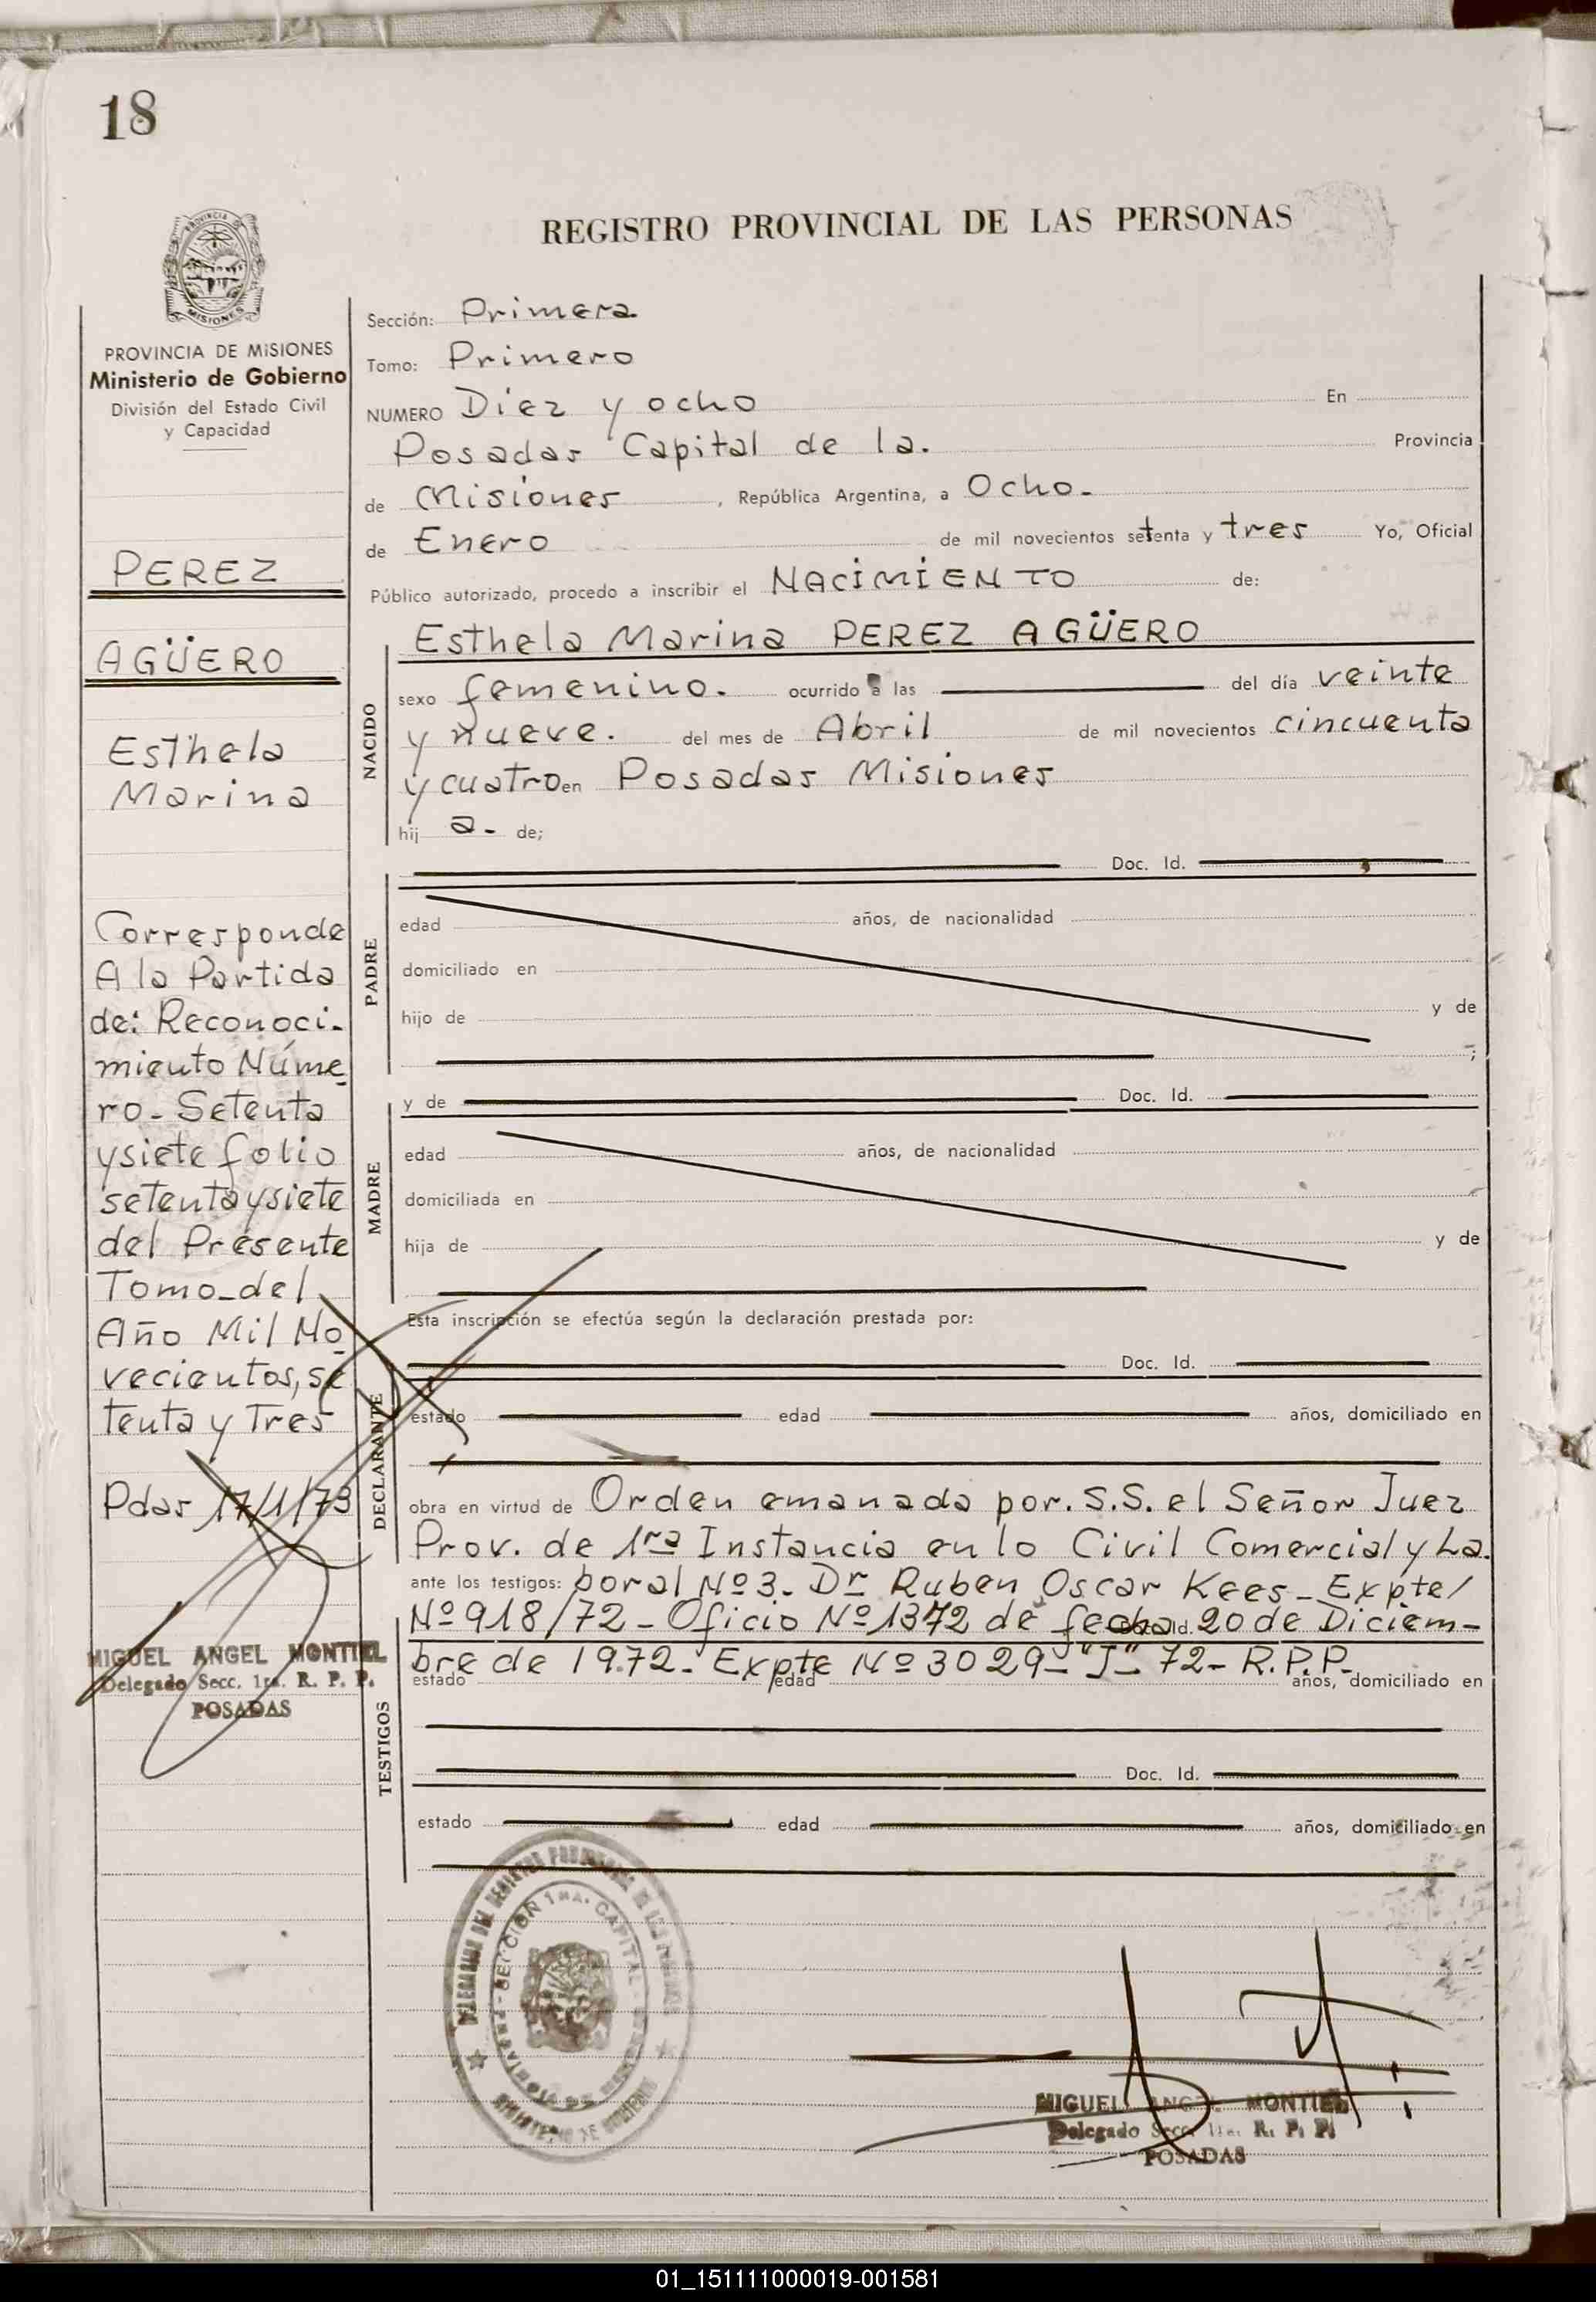 18
REGISTRO PROVINCIAL DE LAS PERSONAS
PROVINCIA DE MISIONES
Ministerio de Gobierno
División del Estado Civil
y Capacidad
PEREZ
AGÜERO
Esthela
Marina
Corresponde
A la Partida
de: Reconoci-
miento Núme
ro- Setenta
y siete folio
setenta y siete
del Presente
Tomo-del
Año Mil No
vecientos, se
tenta y Tres
Pdas 17/1/73
MIGUEL ANGEL MONTIEL
Delegado Secc. 1ra. R. P. P.
POSADAS
Sección: Primera
Tomo: Primero
NUMERO Diez y ocho En
Posadas Capital de la. Provincia
de Misiones, República Argentina, a Ocho-
de Enero de mil novecientos setenta y tres Yo, Oficial
Público autorizado, procedo a inscribir el NACIMIENTO de:
NACIDO
Esthela Marina PEREZ AGÜERO
sexo femenino. ocurrido a las del día veinte
y nueve. del mes de Abril de mil novecientos cincuenta
y cuatro en Posadas Misiones
hij a- de;
PADRE
Doc. Id.
edad años, de nacionalidad
domiciliado en
hijo de y de
;
MADRE
y de Doc. Id.
edad años, de nacionalidad
domiciliada en
hija de y de
DECLARANTE
Esta inscripción se efectúa según la declaración prestada por:
Doc. Id.
estado edad años, domiciliado en
obra en virtud de Orden emanada por. S.S. el Señor Juez
Prov. de 1ra Instancia en lo Civil Comercial y La.
ante los testigos: boral Nº 3- Dr Ruben Oscar Kees- Expte/
Nº 918/72- Oficio Nº 1372 de fecha Doc. Id. 20 de Diciem-
bre de 1972- Expte Nº 3029-"J"- 72- R.P.P.
TESTIGOS
estado edad años, domiciliado en
Doc. Id.
estado edad años, domiciliado en
SECCION 1RA. CAPITAL
MINISTERIO DE GOBIERNO
MIGUEL ANGEL MONTIEL
Delegado Secc. 1ra. R. P. P.
POSADAS
01_151111000019-001581